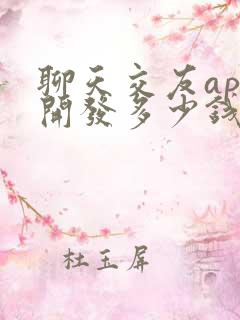 聊天交友ap
開發多少錢
杜玉屏